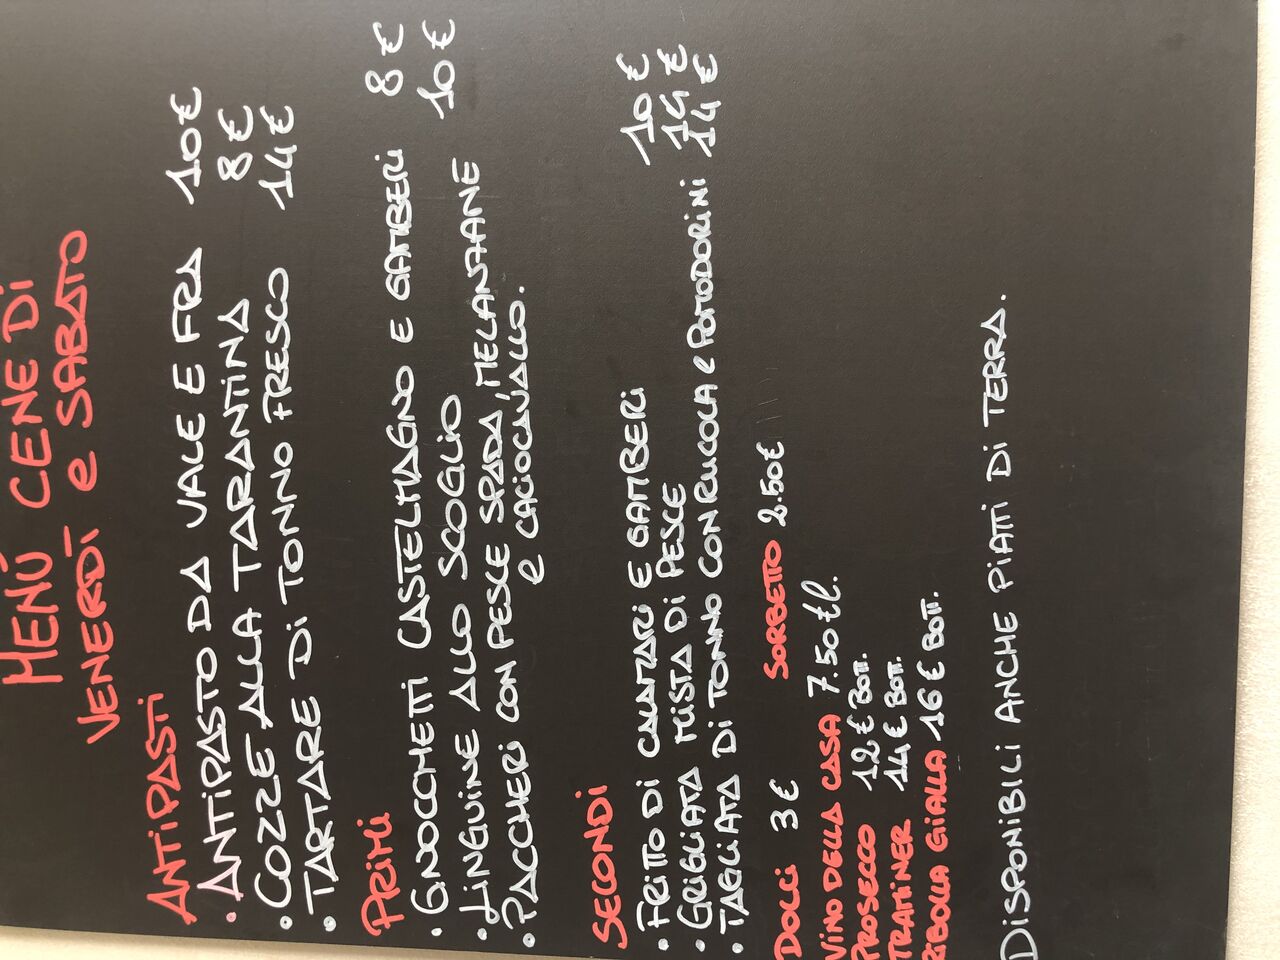 MENÚ CENE DI
VENERDÍ e SABATO
ANTIPASTI
• ANTIPASTO DA VALE E FRA 10€
• COZZE ALLA TARANTINA 8€
• TARTARE DI TONNO FRESCO 14€
PRIMI
• GNOCCHETTI CASTELMAGNO E GAMBERI 8€
• LINGUINE ALLO SCOGLIO 10€
• PACCHERI CON PESCE SPADA, MELANZANE
e CACIOCAVALLO.
SECONDI
• FRITTO DI CALAMARI E GAMBERI 10€
• GRIGLIATA MISTA DI PESCE 14€
• TAGLIATA DI TONNO CON RUCOLA e POMODORINI 14€
DOLCI 3€ SORBETTO 2.50€
VINO DELLA CASA 7.50€ l.
PROSECCO 12€ BOTT.
TRAMINER 14€ BOTT.
RIBOLLA GIALLA 16€ BOTT.
DISPONIBILI ANCHE PIATTI DI TERRA.